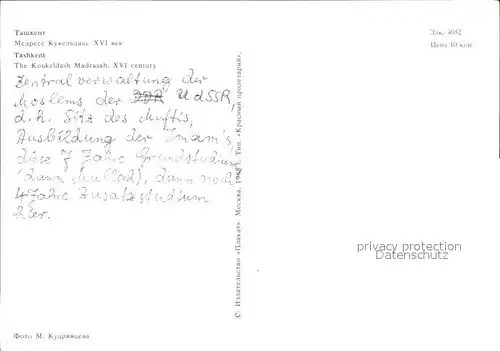 Ташкент
Медресе Кукельдаш. XVI век
Tashkent
The Koukeldash Madrasah. XVI century
Зак. 4052
Цена 10 коп
Zentralverwaltung der
Moslems der DDR UdSSR,
d.h. Sitz des Muftis,
Ausbildung der Imam's,
diese 7 Jahre Grundstudium
(dann Mullah), dann noch
4 Jahre Zusatzstudium
hier.
© Издательство «Плакат». Москва, Тип. «Красный пролетарий».
privacy protection
Akpool.de
Фото М. Кудрявцева